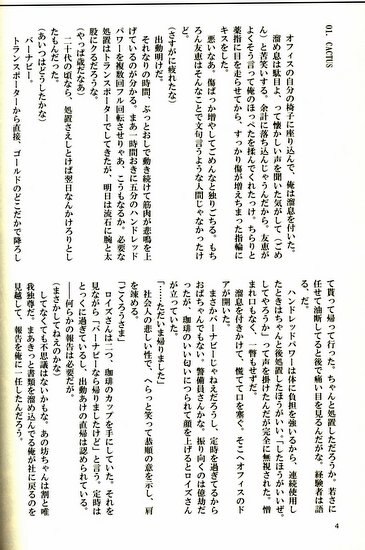 01. CACTUS
オフィスの自分の椅子に座り込んで、俺は溜息を付いた。
溜め息は駄目よ、って懐かしい声を聞いた気がして（ごめ
ん）と苦笑いする。余計に落ち込んじゃうんだから。友恵が
よくそう言って俺のほっぺたを揉んでくれたっけ。ちらりと
薬指に目を走らせてから、すっかり傷が増えちまった指輪に
キスをした。
悪いなあ、傷ばっか増やしてごめんなと独りごちる。もち
ろん友恵はそんなことで文句言うような人間じゃなかったけ
ど。
（さすがに疲れたな）
出動明けだ。
それなりの時間、ぶっとおしで動き続けて筋肉が悲鳴を上
げているのが分かる。まあ一時間おきに五分のハンドレッド
パワーを複数回フル回転させりゃあ、こうもなるか。必要な
処置はトランスポーターでしてきたが、明日は流石に腕と太
股にクるだろうな。
（やっぱ歳だなあ）
二十代の頃なら、処置さえしとけば翌日なんかけろりとし
たもんだった。
（あいつはどうしたかな）
バーナビー。
トランスポーターから直接、ゴールドのどこだかで降ろし
て貰って帰って行った。ちゃんと処置しただろうか。若さに
任せて油断してると後で痛い目を見るんだがな。経験者は語
る、だ。
ハンドレッドパワーは体に負担を強いるから、連続使用し
たときはちゃんと後処置したほうがいいぜ、「したほうがいいぜ、
してやろうか」って声を掛けたんだが完全に無視された。憎
まれ口もなく、一瞥もせずだ。
溜息を付きかけて、慌てて口を塞ぐ。そこへオフィスのド
アが開いた。
まさかバーナビーじゃねえだろうし、定時を過ぎてるから
おばちゃんでもない。警備員さんかな。振り向くのは億劫だ
ったが、珈琲のいい匂いにつられて顔を上げるとロイズさん
が立っていた。
「……ただいま帰りました」
社会人の悲しい性で、へらっと笑って恭順の意を示し、肩
を竦める。
「ごくろうさま」
ロイズさんは二つ、珈琲のカップを手にしていた。それを
見ながら「バーナビーなら帰りましたけど」と言う。定時は
とっくに過ぎているし、出動あけの直帰は認められている。
一何らかの報告は必要だが。
（まさかしてねえのかな）
してなくても不思議はないかもな。あの坊ちゃんは割と唯
我独尊だ。まあきっと書類を溜め込んでる俺が社に戻るのを
見越して、報告を俺に一任したんだろう。
4